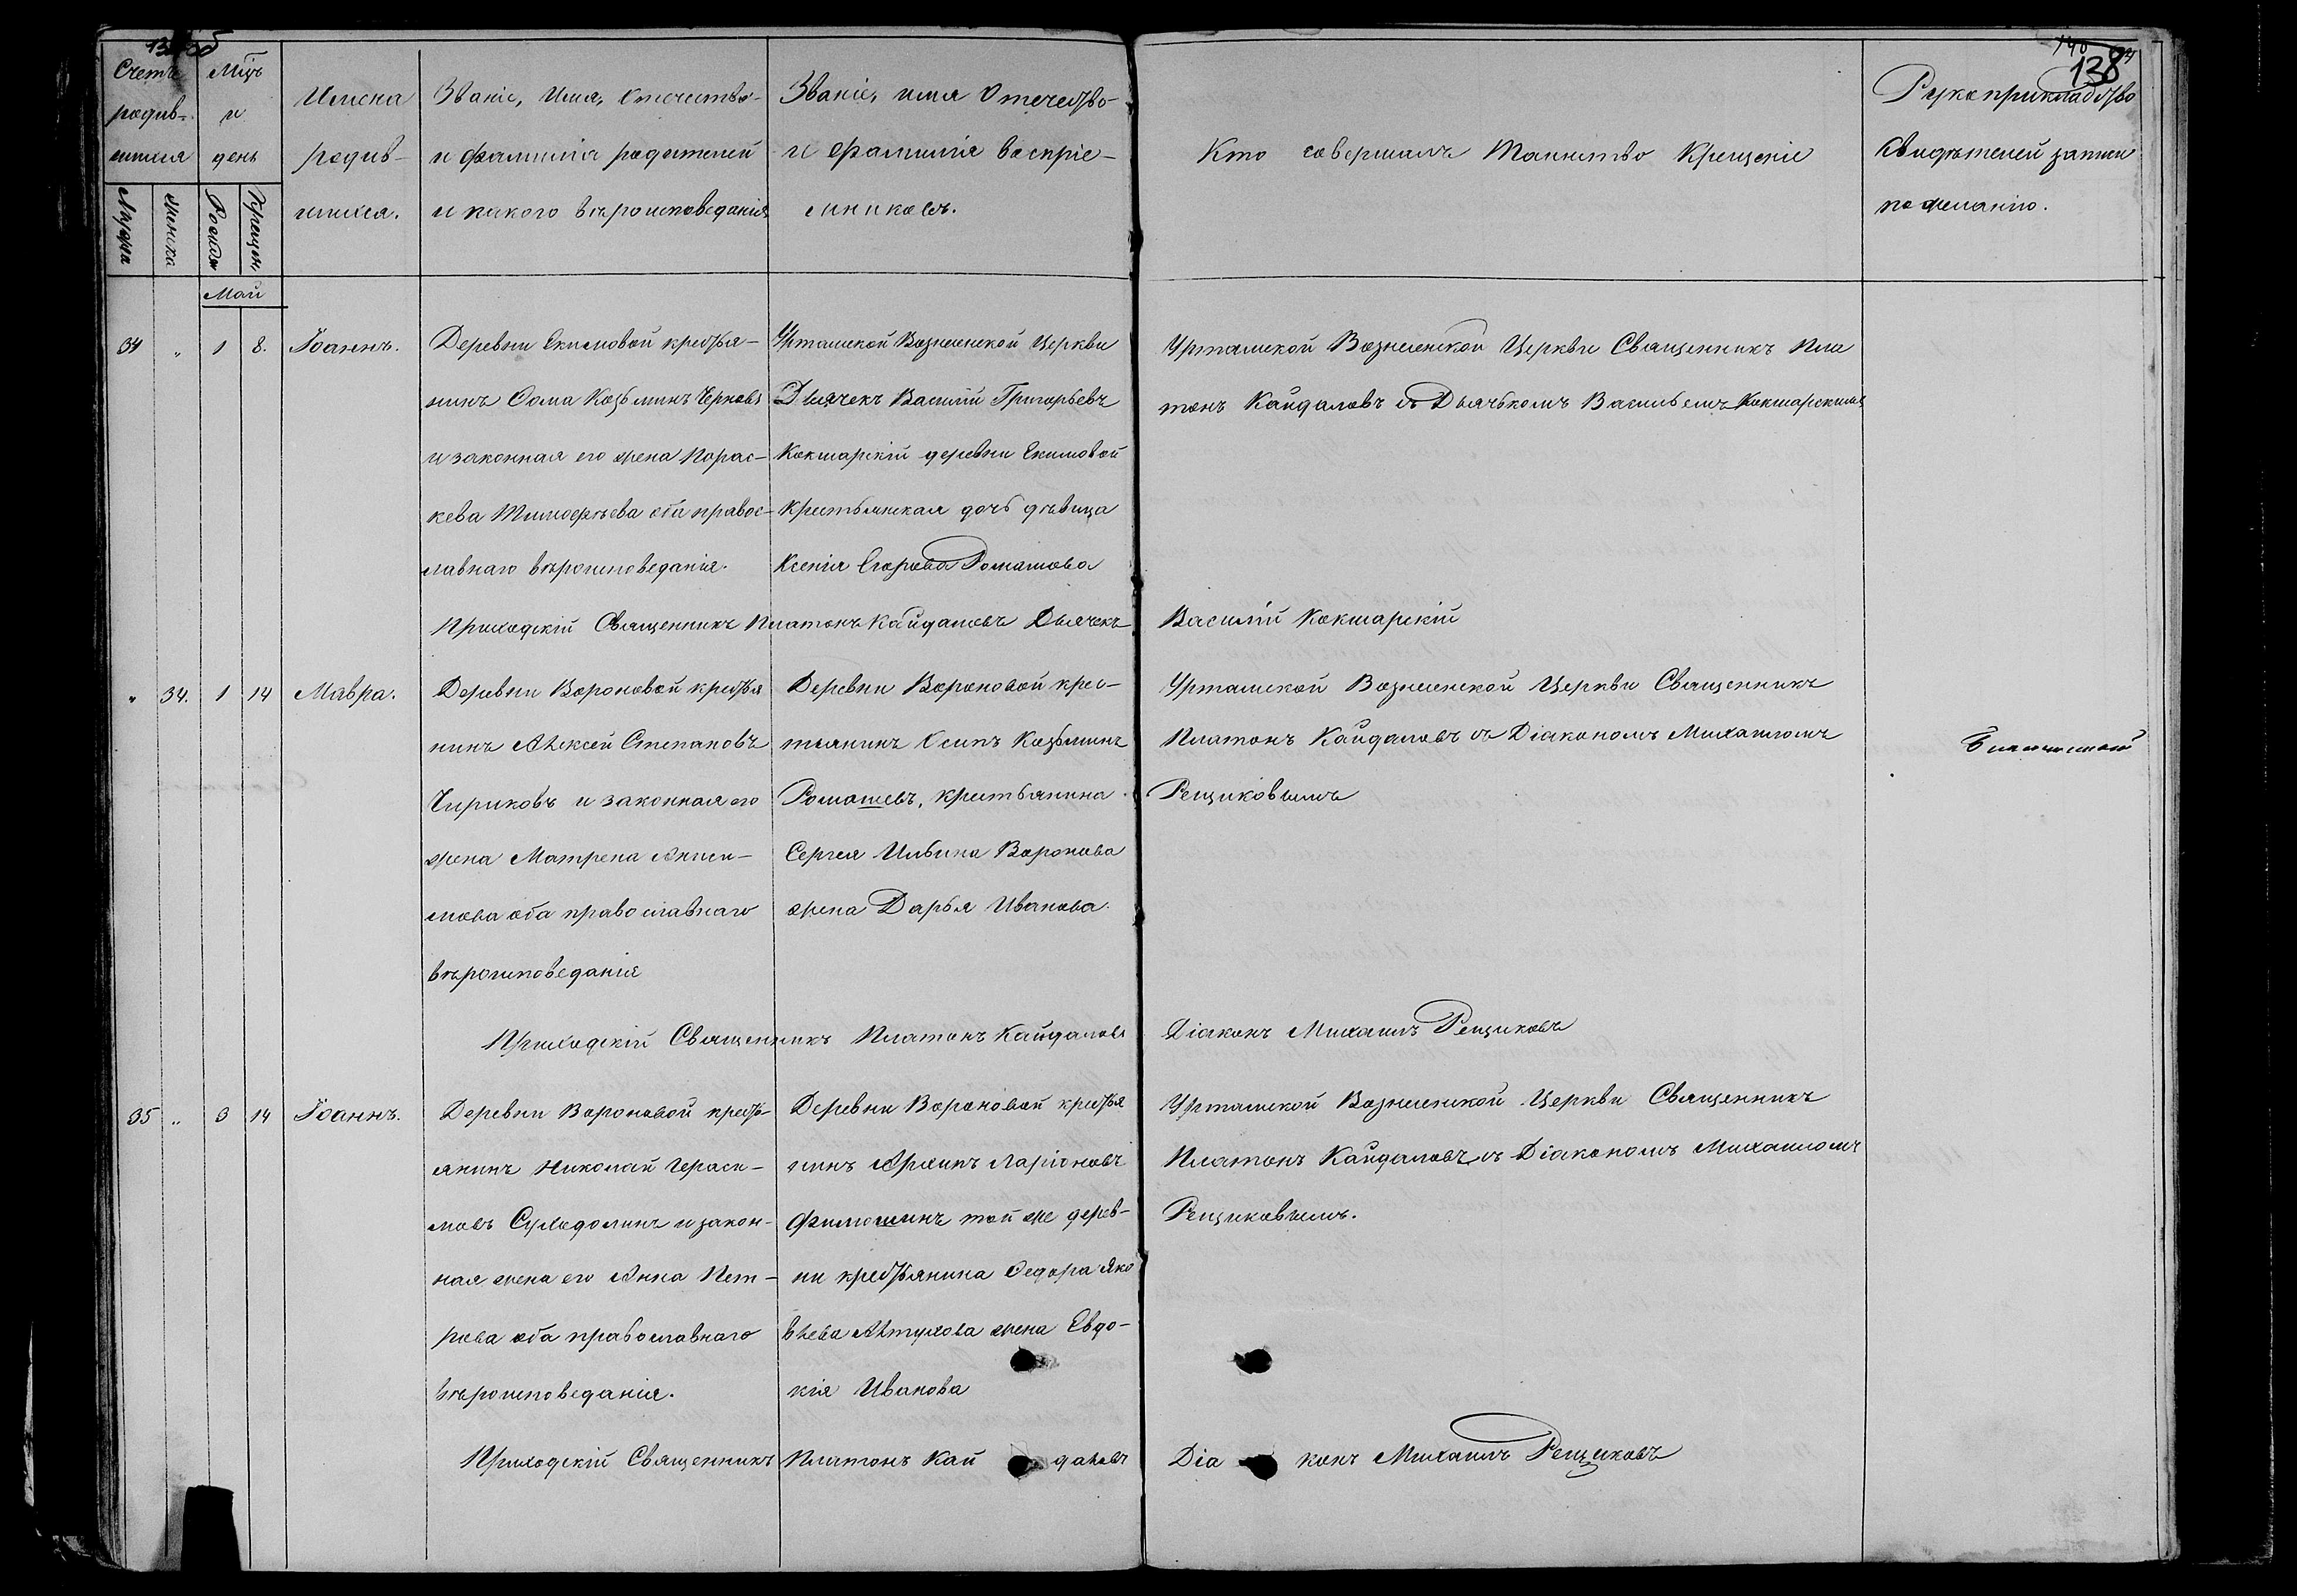 138
Счетъ родив-
шихся
Мужска
Женска
Мѣцъ
и
день
Рожден
Крещен
Имена
родив-
шихся.
Званіе, Имя, Отчество-
и фамилія родителей
и какого вѣроисповеданія
Званіе, имя Отечество-
и фамилія воспріе-
мниковъ.
Кто совершалъ Таинство Крещенія
Рукоприкладство
свидѣтелей записи
по желанію.
Май
34 „ 1 8. Іоаннъ.
Деревни Екимовой крестья-
нинъ Ѳома Козьминъ Черновъ
и законная его жена Порас-
кева Тимоѳеева оба правос-
лавнаго вѣроисповеданія.
Урташской Вознесенской Церкви
Дьячекъ Василій Григорьевъ
Кокшарскій деревни Екимовой
крестьянская дочь дѣвица
Ксенія Егорова Ромашова
Урташской Вознесенской Церкви Священникъ Пла
тонъ Кайдаловъ съ Дьячькомъ Васильемъ Кокшарскимъ
Приходскій Священникъ Платонъ Кайдаловъ Дьячекъ Василій Кокшарскій
„ 34. 1 14 Мавра.
Деревни Вороновой крестья
нинъ Алексей Степановъ
Чириковъ и законная его
жена Матрена Аниси-
мова оба православнаго
вѣроисповеданія
Деревни Вороновой крес-
тьянинъ Осипъ Козьминъ
Ромашевъ, крестьянина
Сергея Ильина Воронова
жена Дарья Иванова.
Урташской Вознесенской Церкви Священникъ
Платонъ Кайдаловъ съ Діакономъ Михаиломъ
Рещиковымъ
Приходскій Священникъ Платонъ Кайдаловъ Діаконъ Михаилъ Рещиковъ
35 „ 3 14 Іоаннъ.
Деревни Вороновой кресть-
янинъ Николай Гераси-
мовъ Суходолинъ и закон-
ная жена его Анна Пет-
рова оба православнаго
вѣроисповеданія.
Деревни Вороновой крестья
нинъ Архипъ Ларіоновъ
Филюшинъ той же дерев-
ни крестьянина Ѳедора Яко
влева Алтухова жена Евдо-
кія Иванова
Урташской Вознесенской Церкви Священникъ
Платонъ Кайдаловъ съ Діакономъ Михаиломъ
Рещиковымъ.
Приходскій Священникъ Платонъ Кай даловъ Діа конъ Михаилъ Рещиковъ